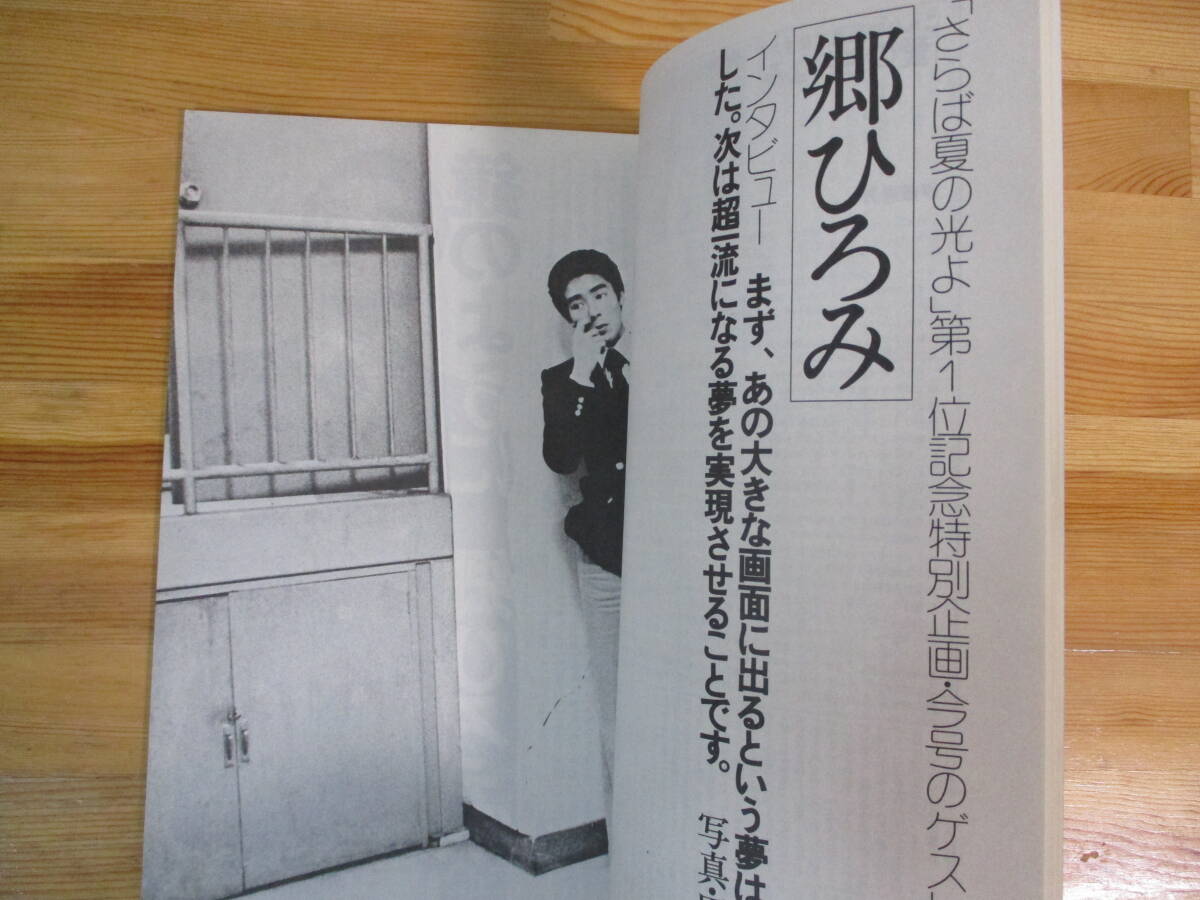 「さらば夏の光よ」第1位記念特別企画・今号のゲスト
郷ひろみ
インタビュー まず、あの大きな画面に出るという夢は
した。次は超一流になる夢を実現させることです。
写真・